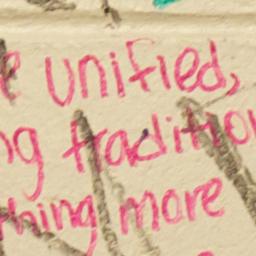 e unified,
ng traditio
thing more